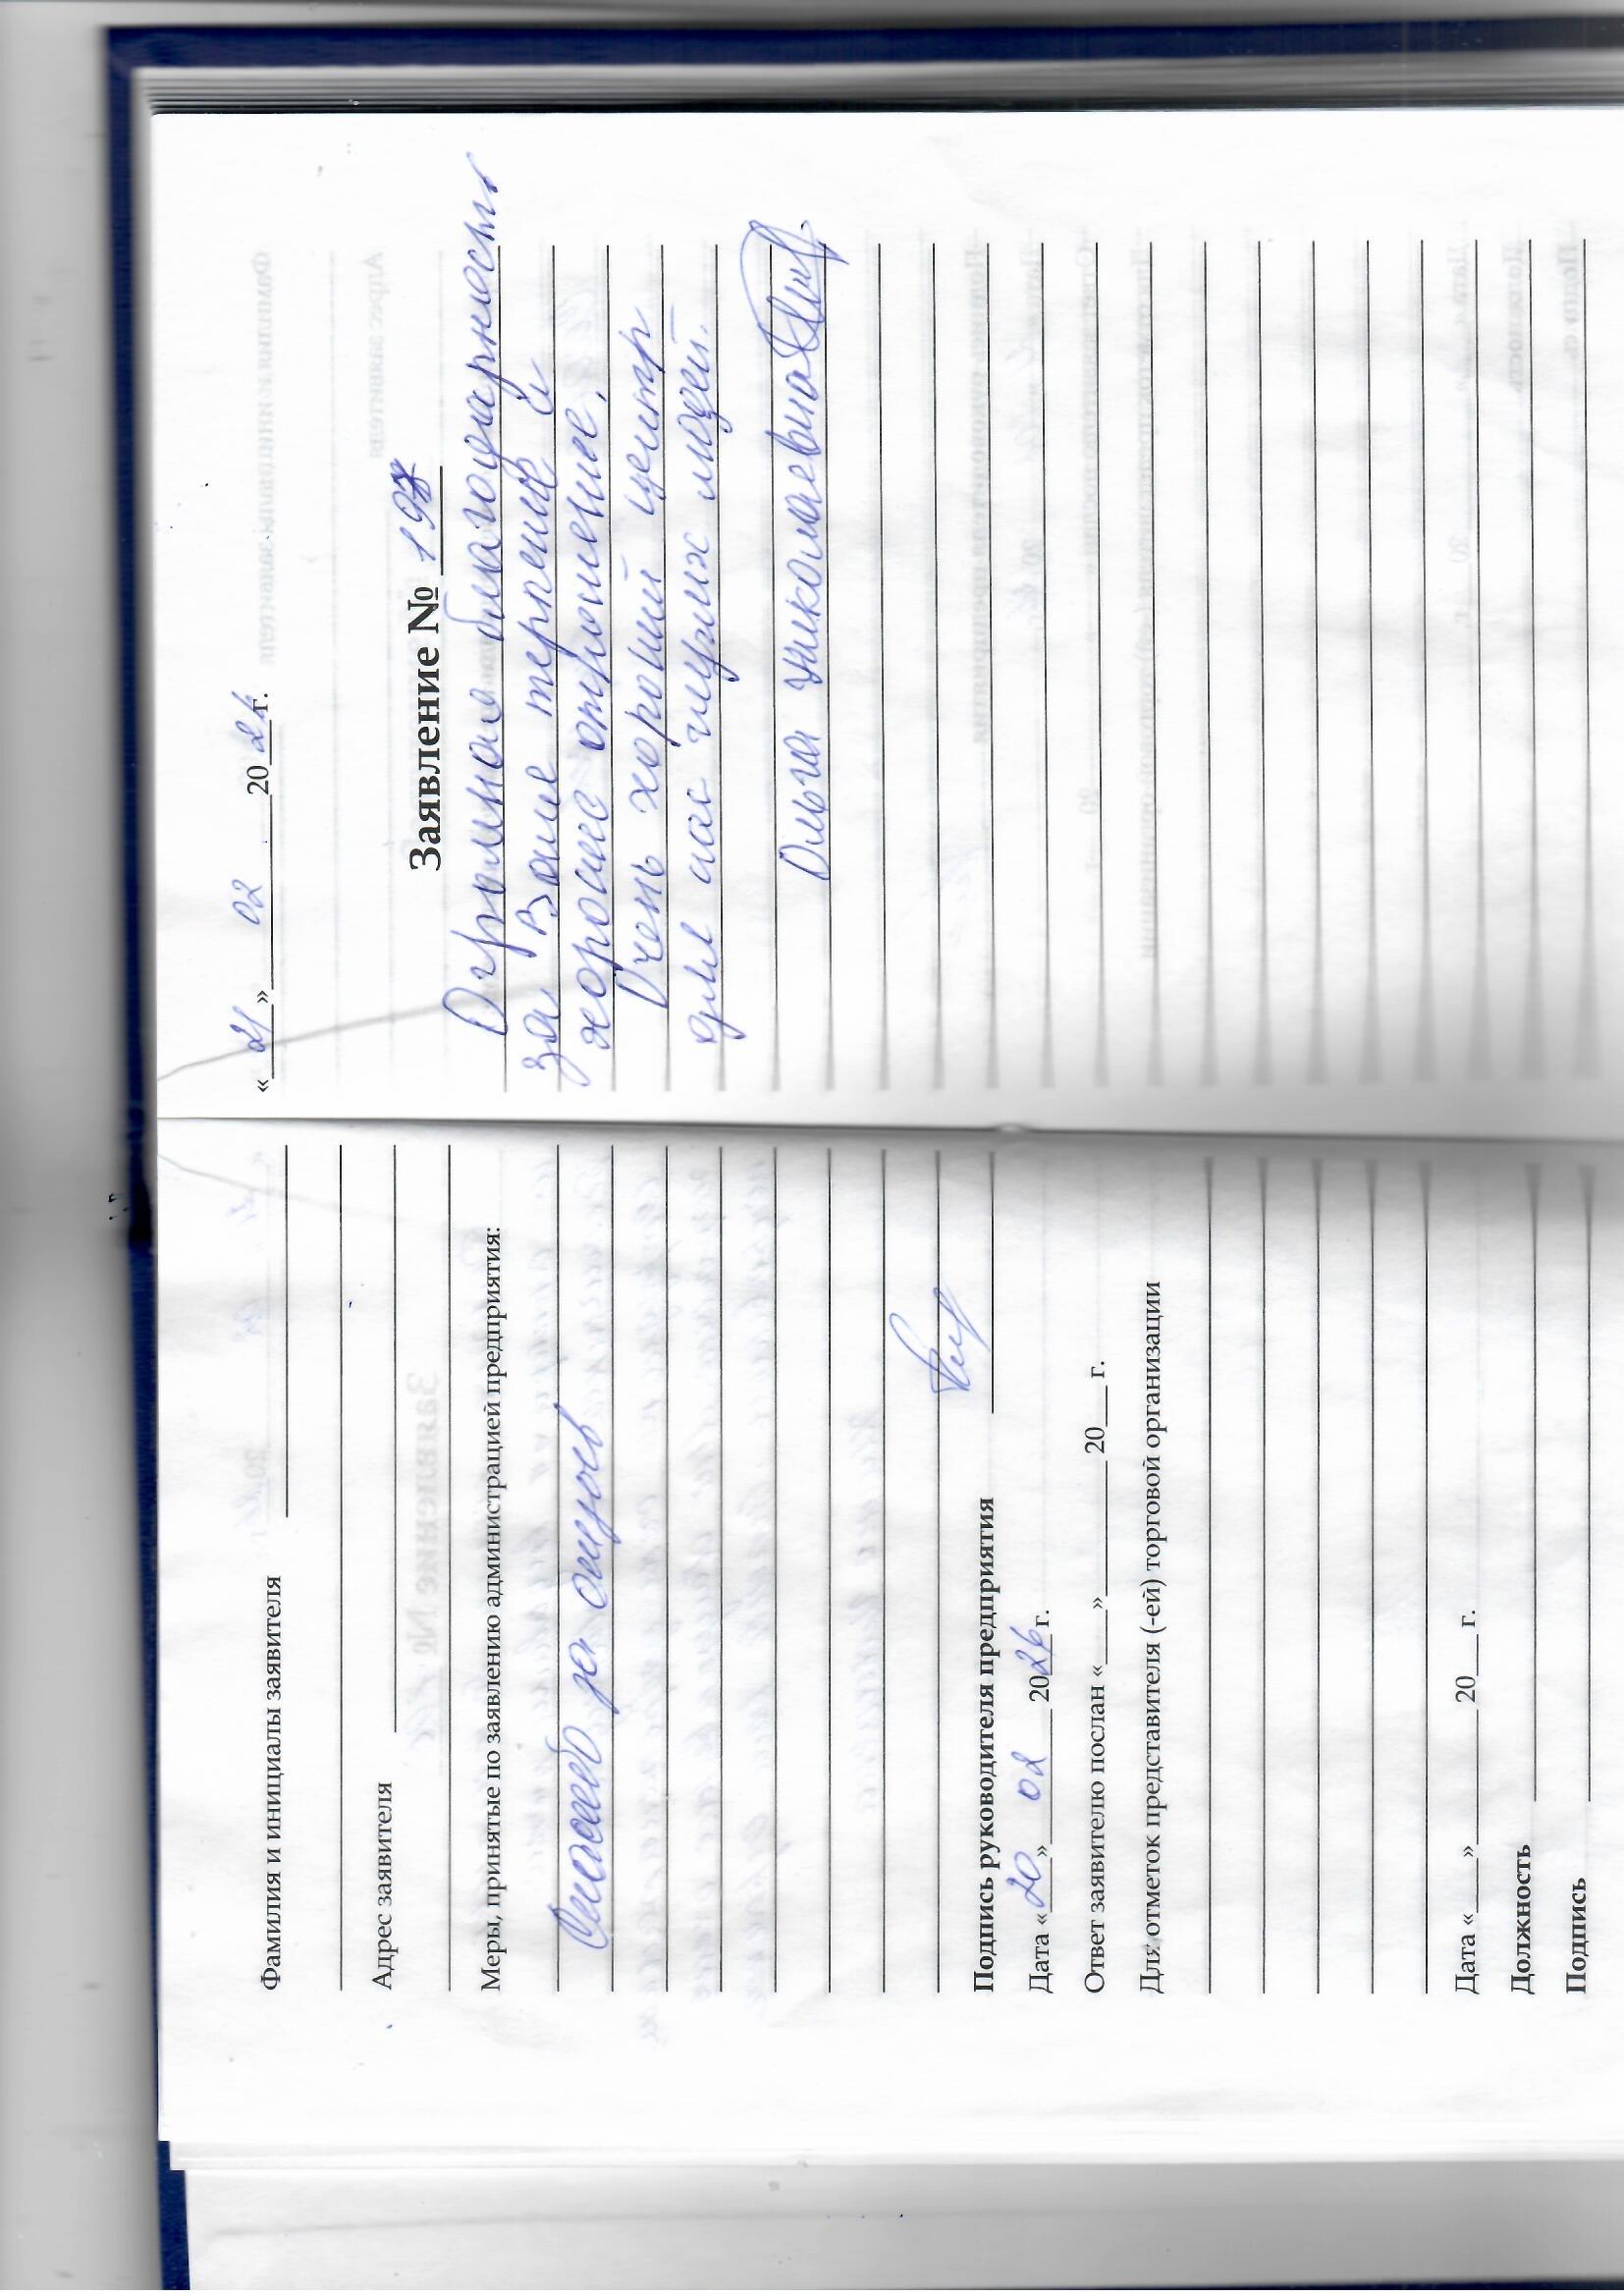 Фамилия и инициалы заявителя
Адрес заявителя
Меры, принятые по заявлению администрацией предприятия:
Спасибо за отзыв
Подпись руководителя предприятия
Дата «20» 02 2026 г.
Ответ заявителю послан «___» ______ 20__ г.
Для отметок представителя (-ей) торговой организации
Дата «___» ______ 20__ г.
Должность
Подпись
«21» 02 2026 г.
Заявление № 197
Огромная благодарность
за Ваше терпение и
хорошее отношение.
Очень хороший центр
для нас глухих людей.
Ольга Николаевна